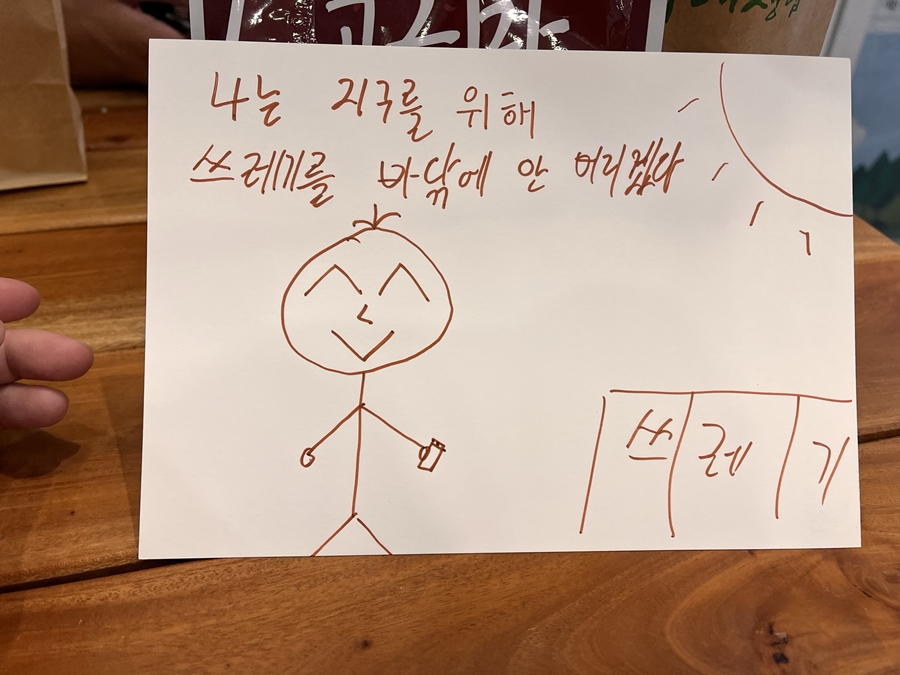 나는 지구를 위해
쓰레기를 바닦에 안 버리겠다
쓰 레 기